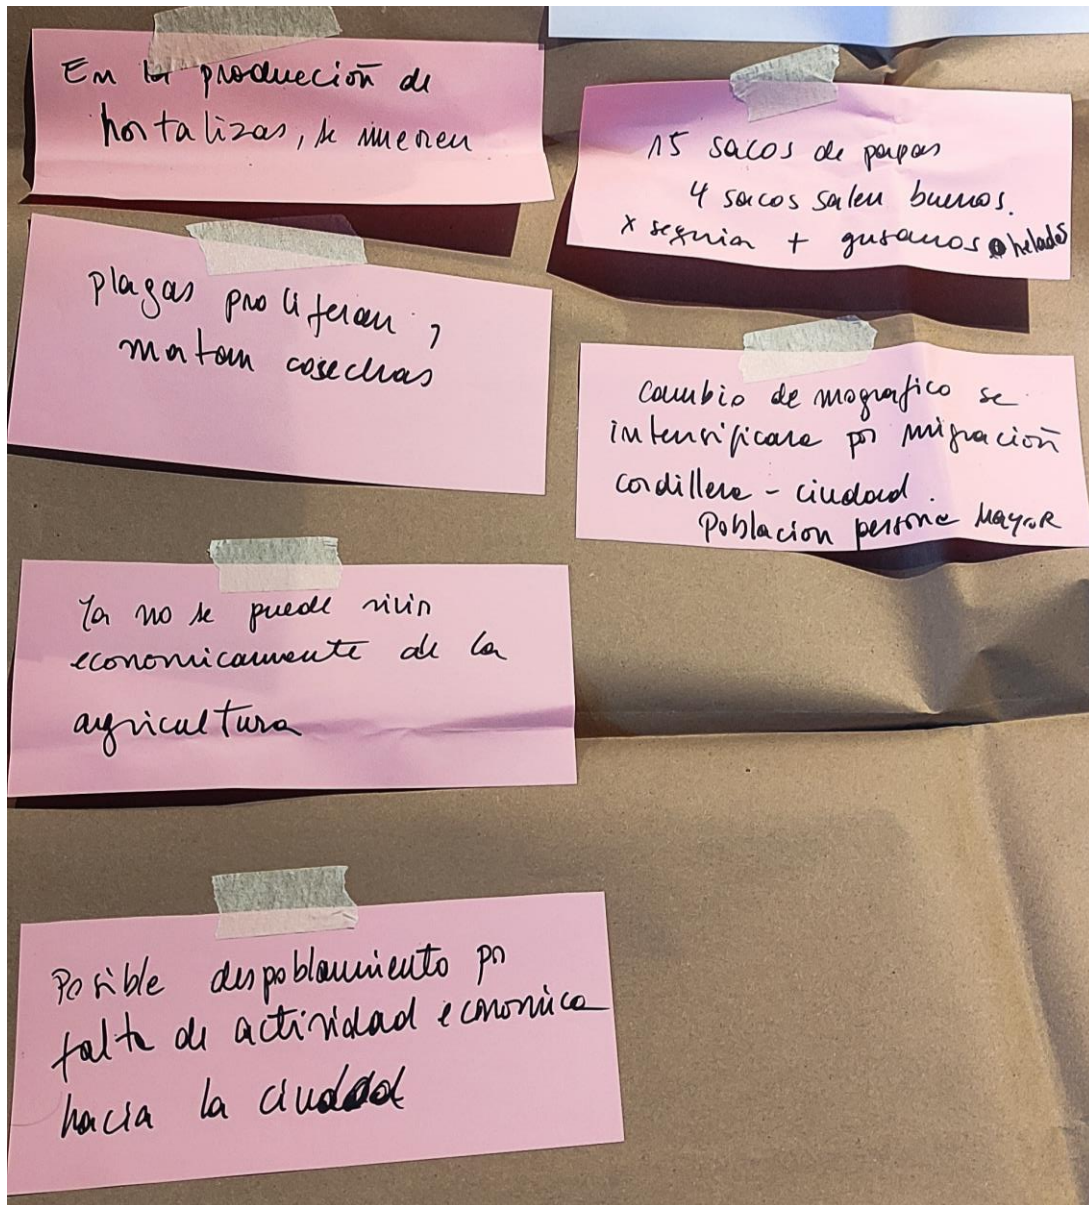 En la produción de
hortalizas, se mueren
plagas proliferan,
matan cosechas
Ya no se puede vivir
economicamente de la
agricultura
Posible despoblamiento por
falta de actividad economica
hacia la ciudad
15 sacos de papas
4 sacos salen buenos.
x sequia + gusanos helados
Cambio demografico se
intensificara por migración
cordillera - ciudad.
Poblacion persona MayoR